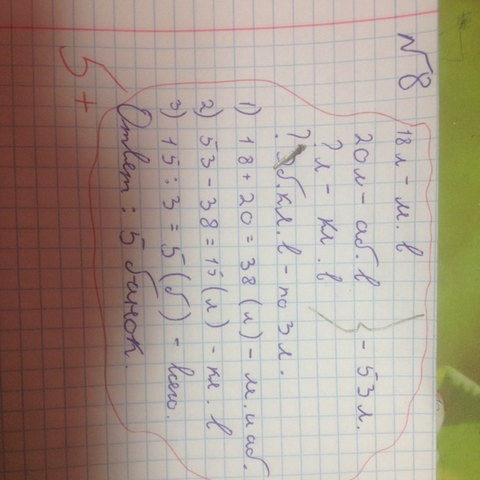 №8
18 л - м. в
20 л - аб. в } - 53 л.
? л - кл. в
? б. кл. в - по 3 л.
1) 18 + 20 = 38 (л) - м. и аб.
2) 53 - 38 = 15 (л) - кл. в
3) 15 : 3 = 5 (б) - всего.
Ответ: 5 банок.
5+